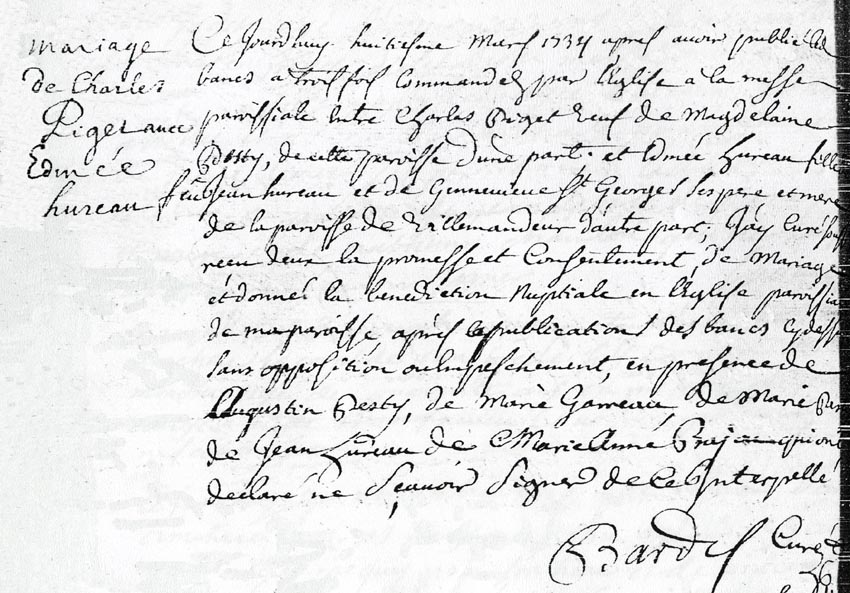 mariage
de Charles
Piget avec
Edmée
hureau
Ce Jourdhuy huitiesme Mars 173 apres auoir publié les
bancs a trois fois Commandez par l'Eglise a la messe
paroissiale Entre Charles Piget Veuf de Magdelaine
Pesty, de cette paroisse dune part. et Edmée hureau fille
feu Jean hureau et de Gennevieve St Georges ses pere et mere
de la paroisse de Villemandeur d'autre part, J'ay Curé
receu deux la promesse et Consentement de Mariage
et donnés la benediction Nuptiale en l'Eglise paroissia
de ma paroisse, apres les publications des bancs cy dess
sans opposition ou Empeschement, en presence de
Augustin Pesty, de Marie Garreau, de Marie
de Jean hureau de Marie Anne qui ont
declaré ne Scauoir Signer de ce Interpellé
Bardes Curé